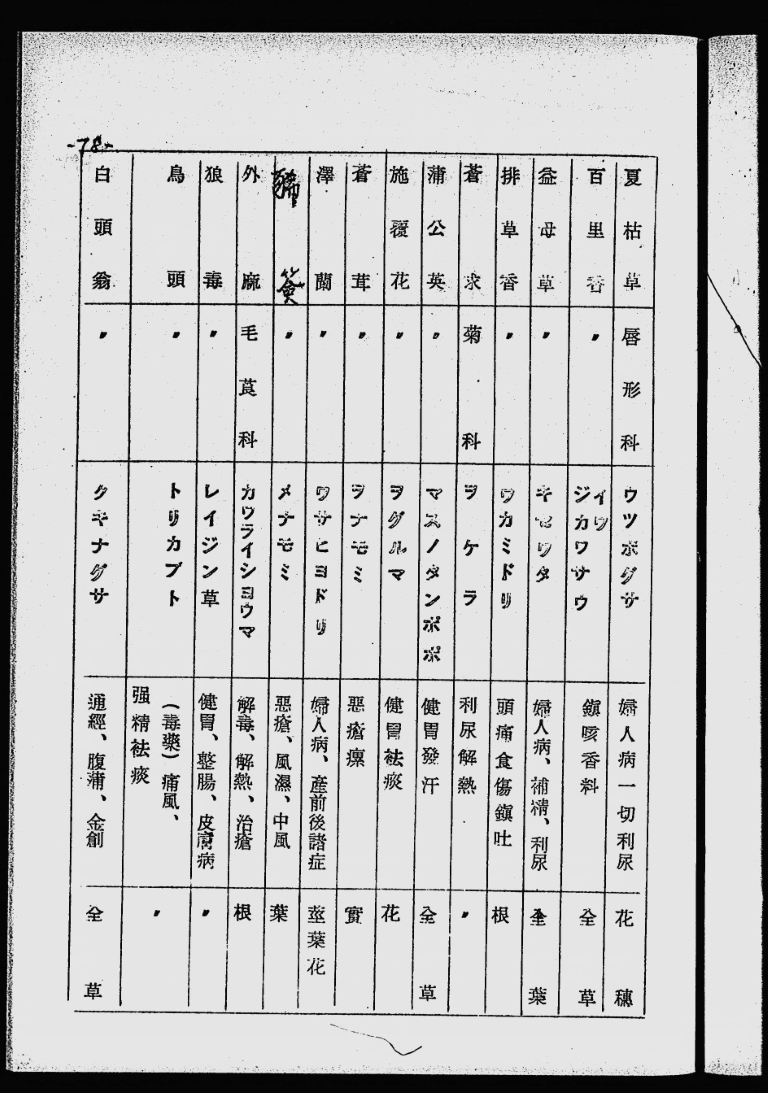 -78-
夏枯草 唇形科 ウツボグサ 婦人病一切利尿 花穗
百里香 〃 イワジカワサウ 鎭咳香料 全草
益母草 〃 キセワタ 婦人病、補精、利尿 全葉
排草香 〃 ワカミドリ 頭痛食傷鎭吐 根
蒼求 菊科 ヲケラ 利尿解熱 〃
蒲公英 〃 マスノタンポポ 健胃發汗 全草
施覆花 〃 ヲグルマ 健胃袪痰 花
蒼茸 〃 ヲナモミ 惡瘡瘰 實
澤蘭 〃 ワサヒヨドリ 婦人病、產前後諸症 莖葉花
豨薟 〃 メナモミ 惡瘡、風濕、中風 葉
外麻 毛茛科 カワライシヨウマ 解毒、解熱、治瘡 根
狼毒 〃 レイジン草 健胃、整腸、皮膚病 〃
鳥頭 〃 トリカブト (毒藥)痛風、强精袪痰 〃
白頭翁 〃 クキナグサ 通經、腹蒲、金創 全草